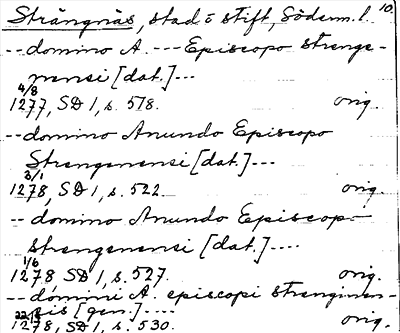 Strängnäs, stad o stift, Söderm. l. 10.
-- domino A. --- Episcopo strenge-
nensi [dat.] ---
4/8
1277, SD 1, s. 518. orig.
-- domino Anundo Episcopo
Strengenensi [dat.] ---
3/1
1278, SD 1, s. 522. orig.
-- domino Anundo Episcopo
strengenensi [dat.] ----
1/6
1278, SD 1, s. 527. orig.
-- domini A. episcopi strenginen-
sis [gen.] ----
1278, SD 1, s. 530. orig.